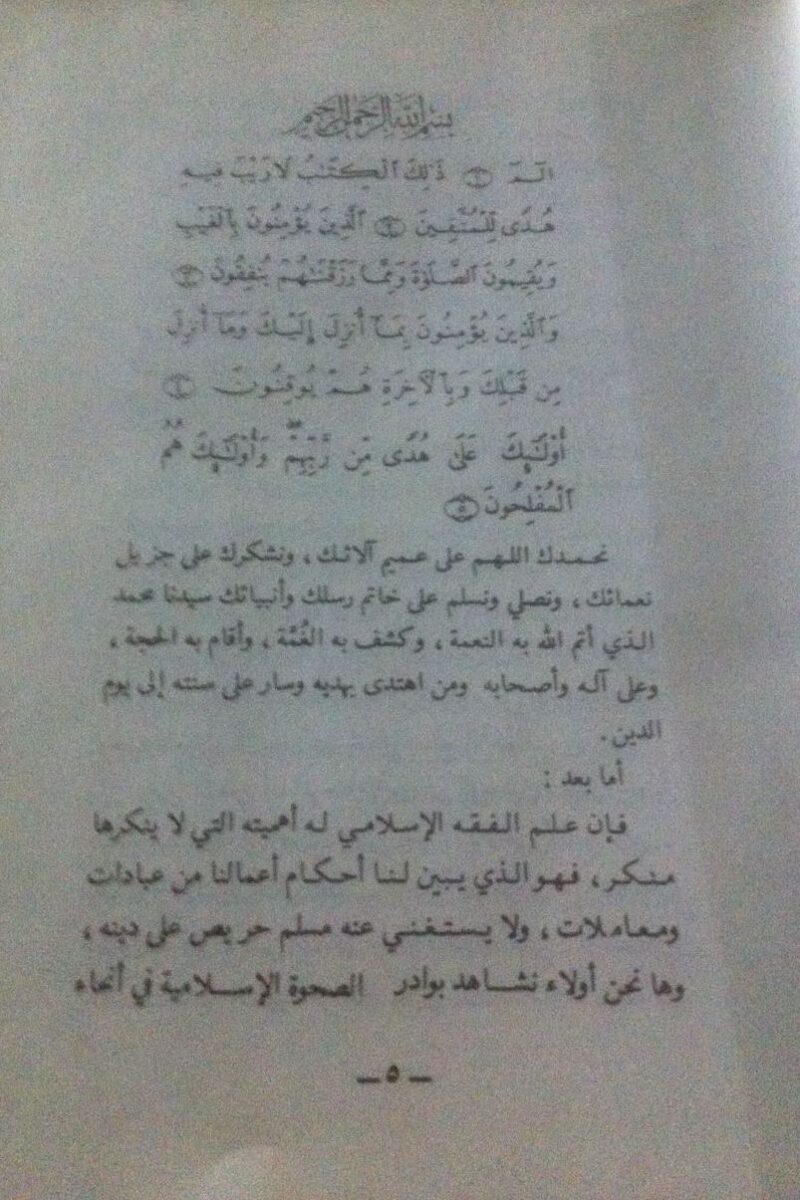 بسم الله الرحمن الرحيم
الٓمٓ ۝١ ذَٰلِكَ ٱلْكِتَٰبُ لَا رَيْبَ فِيهِ
هُدًى لِّلْمُتَّقِينَ ۝٢ ٱلَّذِينَ يُؤْمِنُونَ بِٱلْغَيْبِ
وَيُقِيمُونَ ٱلصَّلَوٰةَ وَمِمَّا رَزَقْنَٰهُمْ يُنفِقُونَ ۝٣
وَٱلَّذِينَ يُؤْمِنُونَ بِمَآ أُنزِلَ إِلَيْكَ وَمَآ أُنزِلَ
مِن قَبْلِكَ وَبِٱلْأَخِرَةِ هُمْ يُوقِنُونَ ۝٤
أُوْلَٰٓئِكَ عَلَىٰ هُدًى مِّن رَّبِّهِمْ ۖ وَأُوْلَٰٓئِكَ هُمُ
ٱلْمُفْلِحُونَ ۝٥
نحمدك اللهم على عميم آلائك ، ونشكرك على جزيل
نعمائك ، ونصلي ونسلم على خاتم رسلك وأنبيائك سيدنا محمد
الذي أتم الله به النعمة ، وكشف به الغُمَّة ، وأقام به الحجة ،
وعلى آله وأصحابه ومن اهتدى بهديه وسار على سنته إلى يوم
الدين .
أما بعد :
فإن علم الفقه الإسلامي له أهميته التي لا ينكرها
منكر ، فهو الذي يبين لنا أحكام أعمالنا من عبادات
ومعاملات ، ولا يستغني عنه مسلم حريص على دينه ،
وها نحن أولاء نشاهد بوادر الصحوة الإسلامية في أنحاء
ــ ٥ ــ